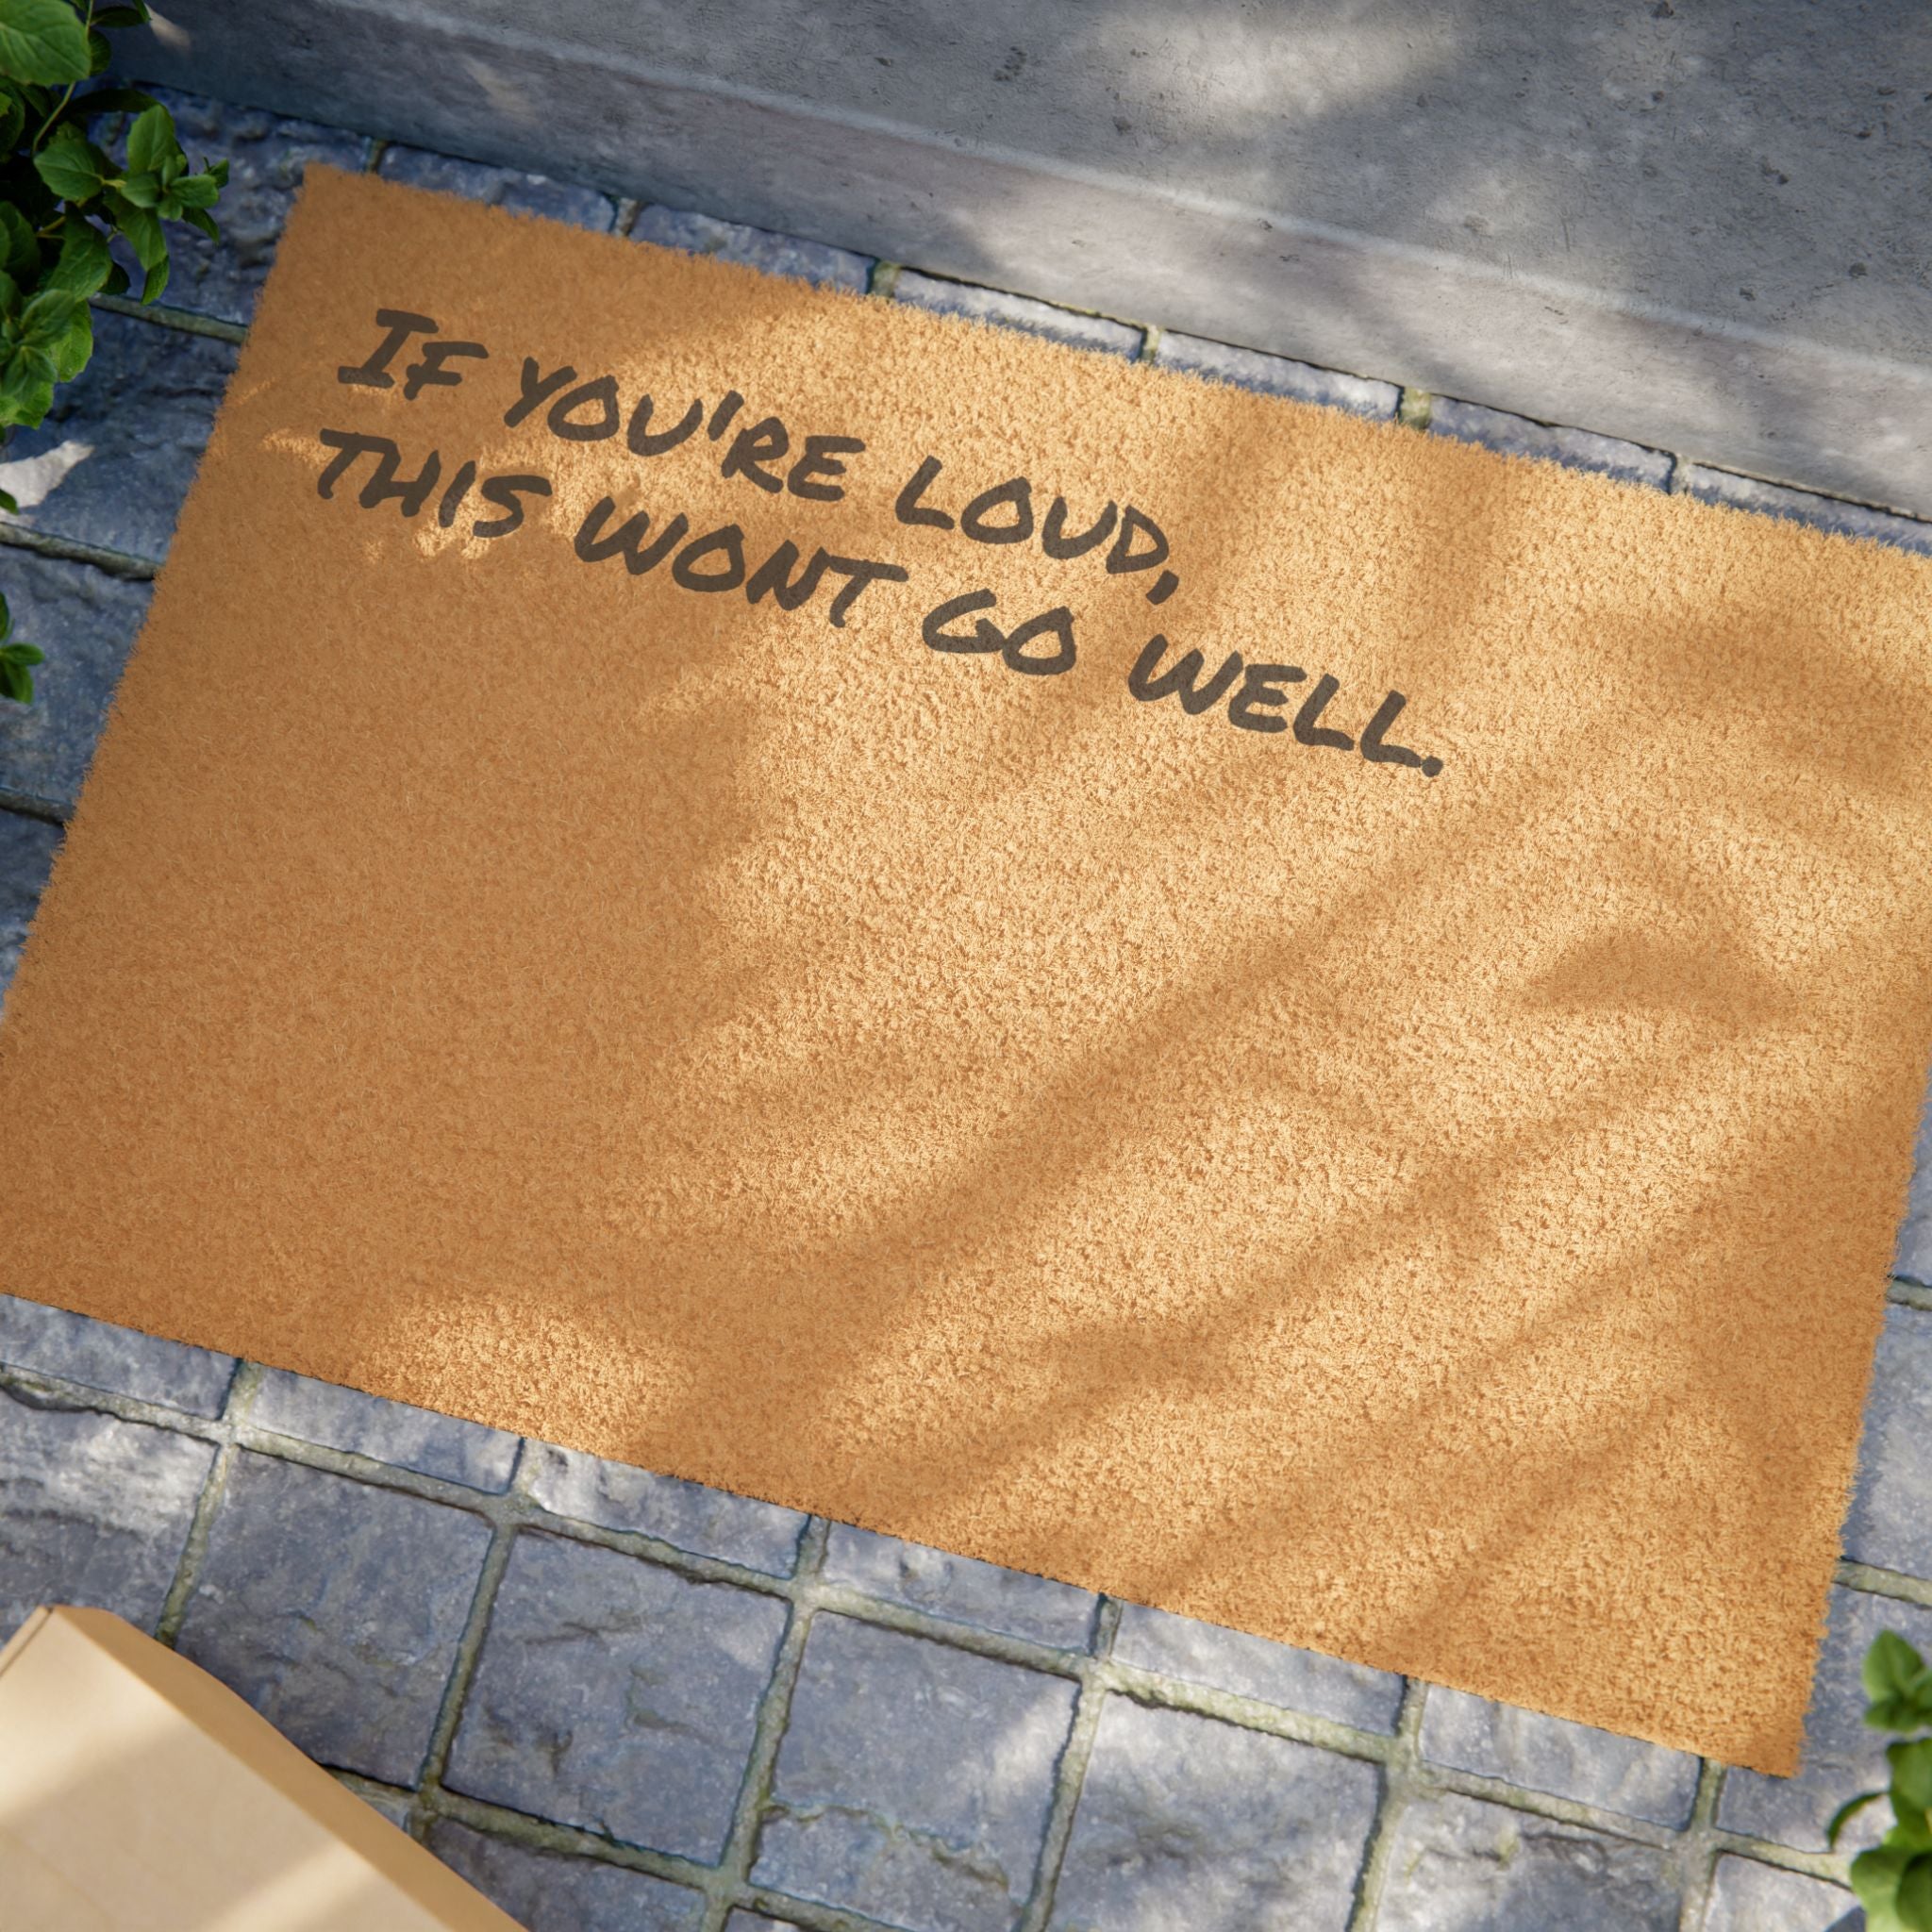 If you're loud,
this wont go well.